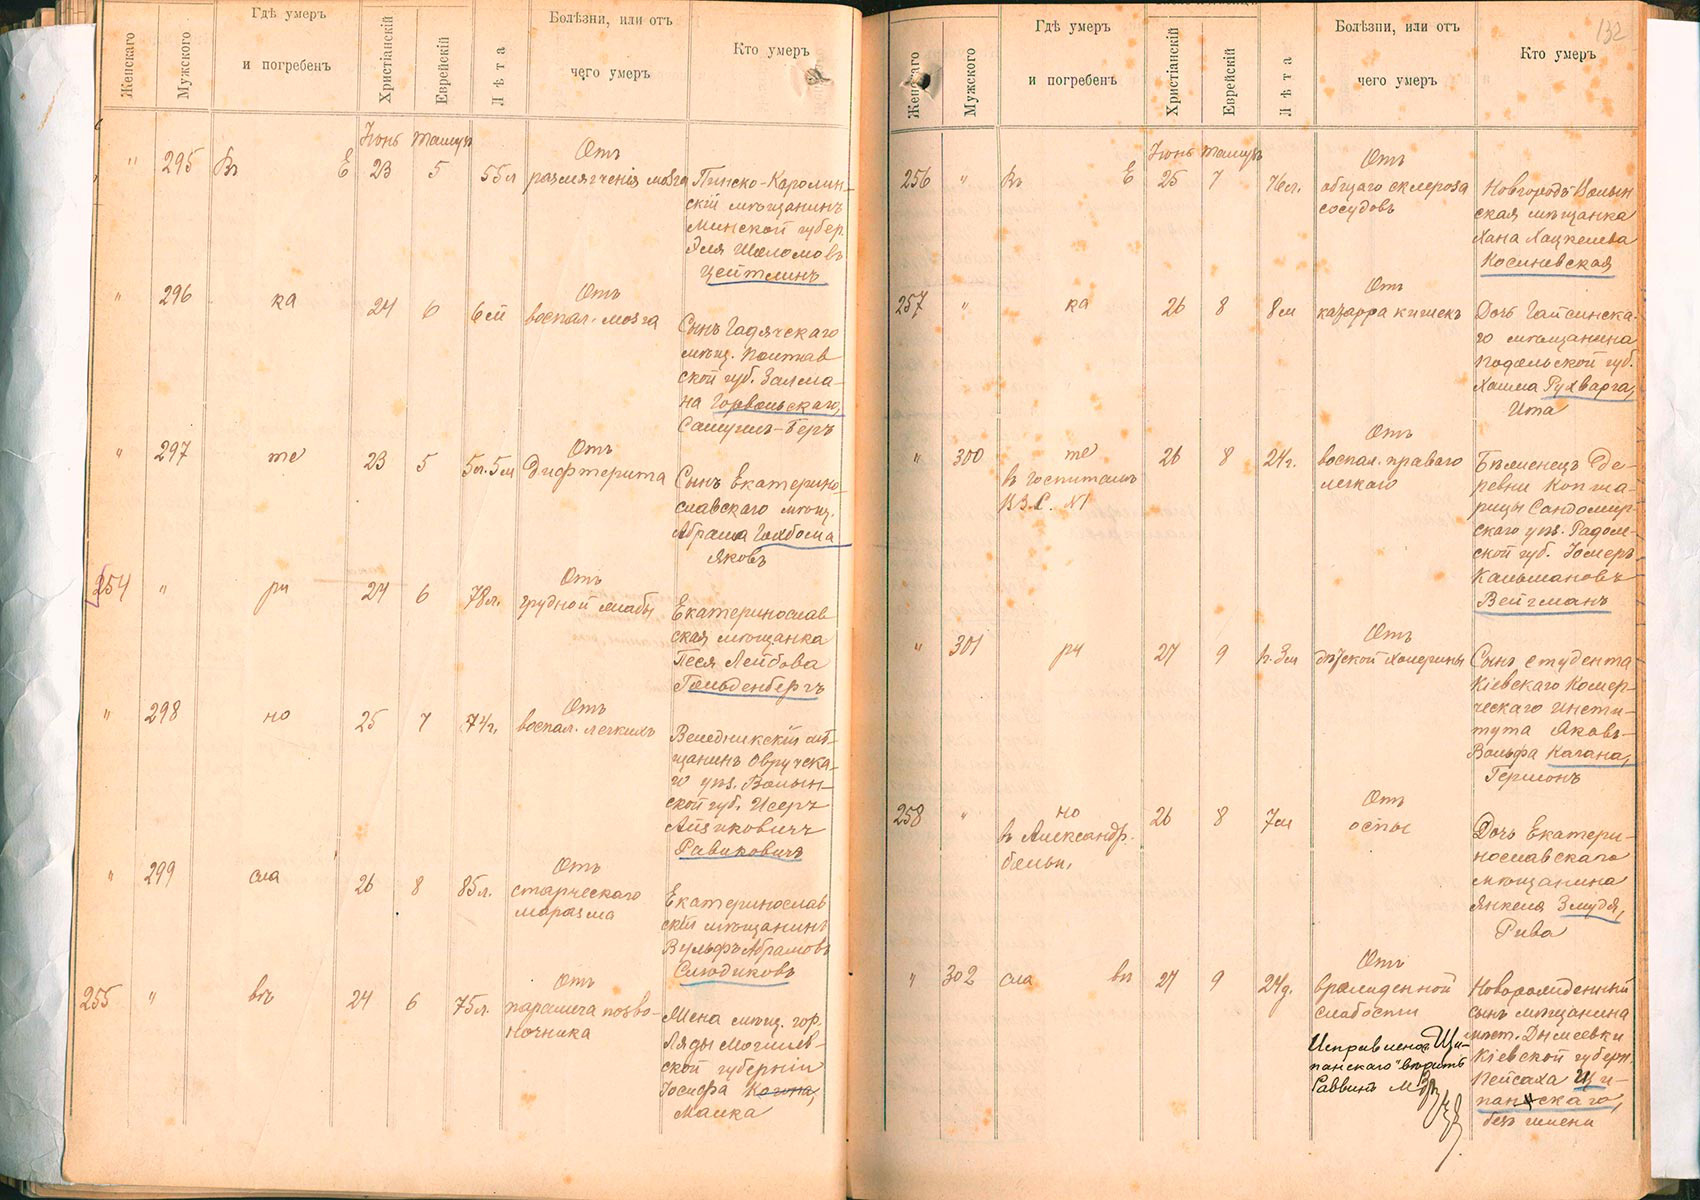 Женскаго
Мужского
Гдѣ умеръ
и погребенъ
Христіанскій
Еврейскій
Лѣта
Болѣзни, или отъ
чего умеръ
Кто умеръ
Іюнь Тамузъ
" 295 Въ Е 23 5 55л
Отъ
размягченія мозга
Пинско-Каролин-
скій мѣщанинъ
Минской губер.
Эля Шоломовъ
Цейтлинъ
" 296 ка 24 6 6м
Отъ
воспал. мозга
Сынъ Гадячскаго
мѣщ. Полтав
ской губ. Залма-
на Горвольскаго,
Самуил-Беръ
" 297 те 23 5 5л. 5м
Отъ
Дифтерита
Сынъ Екатерино-
славскаго мѣщ.
Абрама Гольбома
Яковъ
254 " ри 24 6 78л.
Отъ
грудной жабы
Екатеринослав
ская мѣщанка
Песя Лейбова
Гольденбергъ
" 298 но 25 7 74г.
Отъ
воспал. легкихъ
Веледникскій мѣ-
щанинъ Овручска-
го уѣз. Волын-
ской губ. Исеръ
Айзиковичъ
Равиковичъ
" 299 сла 26 8 85л.
Отъ
старческаго
маразма
Екатеринослав
скій мѣщанинъ
Вульфъ Абрамовъ
Слюдиковъ
255 " въ 24 6 75л.
Отъ
паралича позво-
ночника
Жена мѣщ. гор.
Ляды Могилев-
ской губерніи
Іосифа Когона,
Малка
132
Женскаго
Мужского
Гдѣ умеръ
и погребенъ
Христіанскій
Еврейскій
Лѣта
Болѣзни, или отъ
чего умеръ
Кто умеръ
Іюнь Тамузъ
256 " Въ Е 25 7 76л.
Отъ
общаго склероза
сосудовъ
Новгородъ-Волын
ская мѣщанка
Хана Хацкелева
Косиневская
257 " ка 26 8 8м
Отъ
катарра кишекъ
Дочь Гайсинска-
го мѣщанина
Подольской губ.
Хаима Рухварга,
Ита
" 300 те 26 8 24г.
въ госпиталѣ
В.З.С. №1
Отъ
воспал. праваго
легкаго
Бѣженецъ де-
ревни Копжа-
рицы Сандомир-
скаго уѣз. Радом-
ской губ. Іомеръ
Кальмановъ
Вейгманъ
" 301 ри 27 9 1г. 3м
Отъ
дѣтской холерины
Сынъ студента
Кіевскаго Комер-
ческаго Инсти-
тута Яковъ-
Вольфа Кагана,
Гершонъ
258 " но 26 8 7м
въ Александр.
больн.
Отъ
оспы
Дочь Екатери-
нославскаго
мѣщанина
Янкеля Змудя,
Рива
" 302 сла въ 27 9 24д.
Отъ
врожденной
слабости
Новорожденный
сынъ мѣщанина
мѣст. Дымеевки
Кіевской губерн.
Пейсаха Щи-
панскаго,
безъ имени
Исправлено "Щи-
панскаго" вѣрить
Раввинъ